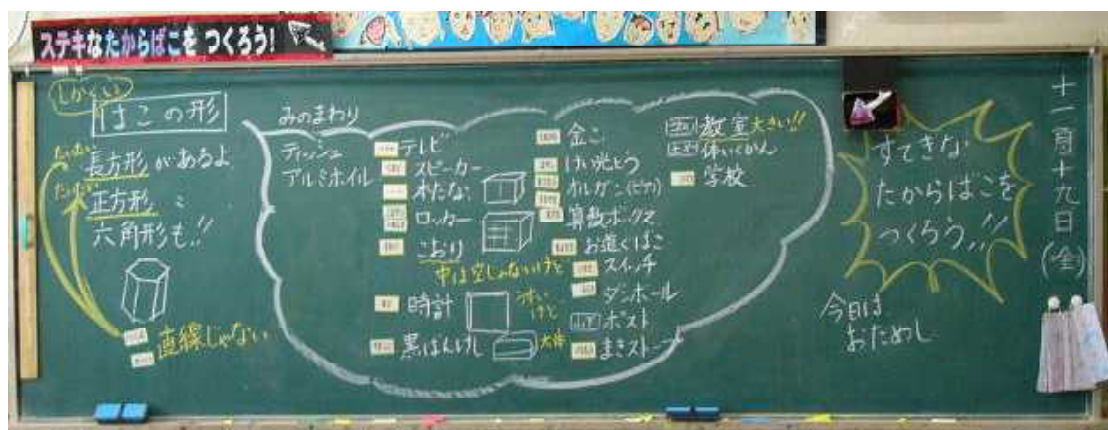 ステキなたからばこをつくろう!
しかくい
はこの形
だいたい
長方形があるよ
だいたい
正方形〃
六角形も!!
直線じゃない
みのまわり
ティッシュ
アルミホイル
テレビ
スピーカー
本だな
ロッカー
こおり
中は空じゃないけど
時計
うすいけど
黒ばんけし
大体
金こ
けい光とう
オルガン(ピアノ)
算数ボックス
お道ぐばこ
スイッチ
ダンボール
ポスト
まきストーブ
教室 大きい!!
体いくかん
学校
すてきな
たからばこを
つくろう!!
今日は
おためし
十一月十九日(金)